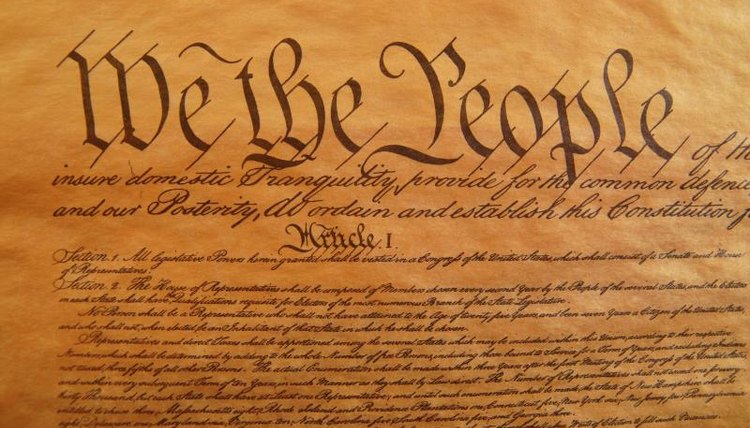 We the People of the
insure domestic Tranquility, provide for the common defence
and our Posterity, do ordain and establish this Constitution f
Article. I.
Section. 1. All legislative Powers herein granted shall be vested in a Congress of the United States, which shall consist of a Senate and House
of Representatives.
Section. 2. The House of Representatives shall be composed of Members chosen every second Year by the People of the several States, and the Electors
in each State shall have the Qualifications requisite for Electors of the most numerous Branch of the State Legislature.
No Person shall be a Representative who shall not have attained to the Age of twenty five Years, and been seven Years a Citizen of the United States,
and who shall not, when elected, be an Inhabitant of that State in which he shall be chosen.
Representatives and direct Taxes shall be apportioned among the several States which may be included within this Union, according to their respective
Numbers, which shall be determined by adding to the whole Number of free Persons, including those bound to Service for a Term of Years, and excluding Indians
not taxed, three fifths of all other Persons. The actual Enumeration shall be made within three Years after the first Meeting of the Congress of the United States,
and within every subsequent Term of ten Years, in such Manner as they shall by Law direct. The Number of Representatives shall not exceed one for every
thirty Thousand, but each State shall have at Least one Representative; and until such enumeration shall be made, the State of New Hampshire shall be
entitled to chuse three, Massachusetts eight, Rhode Island and Providence Plantations one, Connecticut five, New York six, New Jersey four, Pennsylvania
eight, Delaware one, Maryland six, Virginia ten, North Carolina five, South Carolina five, and Georgia three.